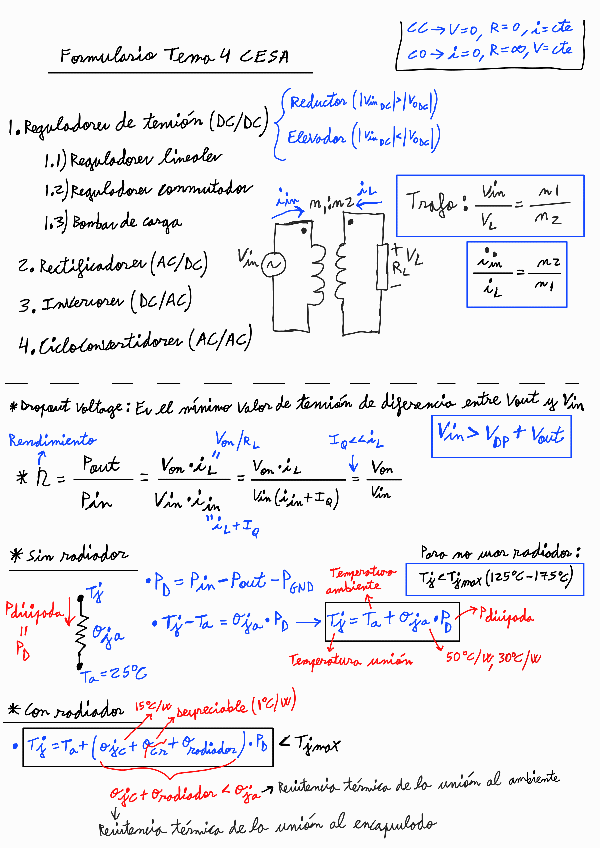 CC → V=0, R=0, i=cte
CO → i=0, R=∞, V=cte
Formulario Tema 4 CESA
1. Reguladores de tensión (DC/DC)
Reductor (|Vin DC|>|Vo DC|)
Elevador (|Vin DC|<|Vo DC|)
1.1) Reguladores lineales
1.2) Reguladores conmutador
1.3) Bombas de carga
2. Rectificadores (AC/DC)
3. Inversores (DC/AC)
4. Cicloconvertidores (AC/AC)
i in n1:n2 iL
Vin
+ VL
RL
-
Trafo: Vin/VL = n1/n2
i in/iL = n2/n1
* Dropout Voltage: Es el mínimo valor de tensión de diferencia entre Vout y Vin
Vin > VDP + Vout
Rendimiento
Von/RL
IQ<<iL
* η = Pout/Pin = Von·iL/Vin·i in = Von·iL/Vin(i in+IQ) = Von/Vin
"iL+IQ
* Sin radiador
Para no usar radiador:
Tj<Tjmax (125ºC-175ºC)
Tj
Pdisipada
=
PD
θja
Ta=25ºC
• PD = Pin - Pout - PGND
• Tj - Ta = θja · PD → Tj = Ta + θja · PD
Temperatura ambiente
Pdisipada
Temperatura unión
50ºC/W, 30ºC/W
* Con radiador
15ºC/W
depreciable (1ºC/W)
• Tj = Ta + (θjc + θcr + θradiador) · PD < Tjmax
θjc + θradiador < θja → Resistencia térmica de la unión al ambiente
Resistencia térmica de la unión al encapsulado